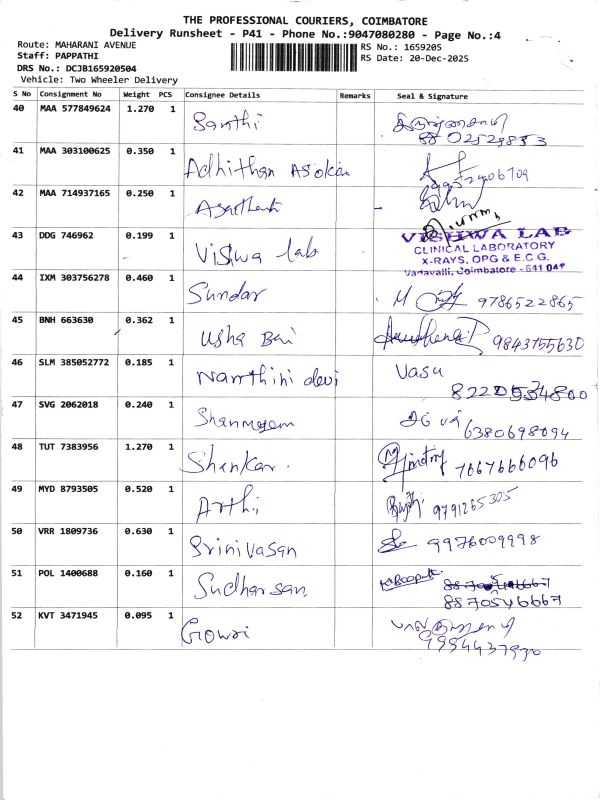 THE PROFESSIONAL COURIERS, COIMBATORE
Delivery Runsheet - P41 - Phone No.:9047080280 - Page No.:4
Route: MAHARANI AVENUE
Staff: PAPPATHI
DRS No.: DCJB165920504
Vehicle: Two Wheeler Delivery
RS No.: 1659205
RS Date: 20-Dec-2025
S No Consignment No Weight PCS Consignee Details Remarks Seal & Signature
40 MAA 577849624 1.270 1 Santhi
41 MAA 303100625 0.350 1 Adhithan Asokan
42 MAA 714937165 0.250 1
43 DDG 746962 0.199 1 Vishwa lab
VISHWA LAB
CLINICAL LABORATORY
X-RAYS, OPG & E.C.G.
Vadavalli, Coimbatore - 641 04
44 IXM 303756278 0.460 1 Sundar M 9786522865
45 BNH 663630 0.362 1 Usha Bai 9843755630
46 SLM 385052772 0.185 1 Nanthini devi Vasu
47 SVG 2062018 0.240 1 Shanmugam
6380698094
48 TUT 7383956 1.270 1 Shankar. 7667666096
49 MYD 8793505 0.520 1 Arthi 9791265305
50 VRR 1809736 0.630 1 Srinivasan 9976009998
51 POL 1400688 0.160 1 Sudharsan
8870546667
52 KVT 3471945 0.095 1 Gowri
9994437930